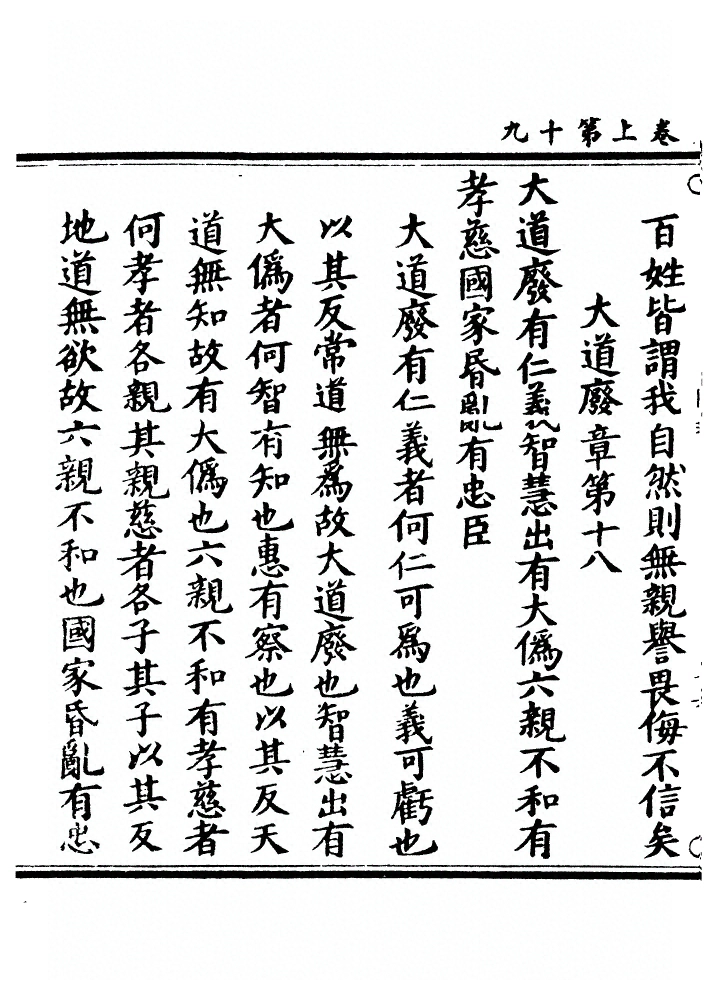 卷上第十九
百姓皆謂我自然則無親譽畏侮不信矣
大道廢章第十八
大道廢有仁義智慧出有大僞六親不和有
孝慈國家昬亂有忠臣
大道廢有仁義者何仁可爲也義可虧也
以其反常道無爲故大道廢也智慧出有
大僞者何智有知也惠有察也以其反天
道無知故有大僞也六親不和有孝慈者
何孝者各親其親慈者各子其子以其反
地道無欲故六親不和也國家昏亂有忠